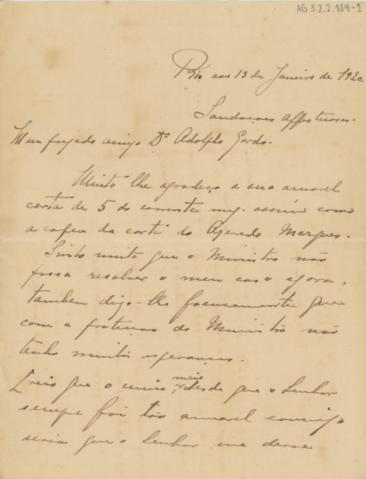 AG 3.2.2.189-1
Rio aos 13 de Janeiro de 1920
Saudacoes Affectuosas.
Meu prezado amigo Dr. Adolpho Gordo.
Muito lhe agradeço a sua amavel
carta de 5 do corrente assim como
a copia da carta do Azevedo Marques.
Sinto muito que o Ministro não
possa resolver o meu caso agora,
tambem digo-lhe francamente que
com a do Ministro não
tenho muitas esperanças.
Creio que o meio desde que o Senhor
sempre foi tão amavel comigo
seria que o Senhor me desse